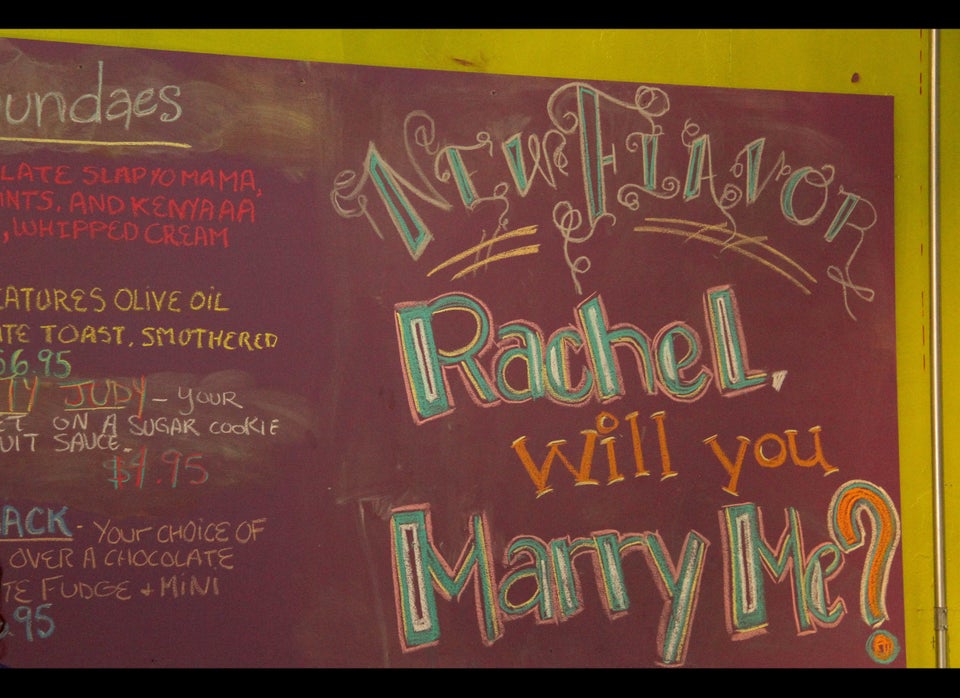 undaes
LATE SLAP YO MAMA,
NTS, AND KENYA AA
, WHIPPED CREAM
EATURES OLIVE OIL
TE TOAST, SMOTHERED
$6.95
TY JUDY - YOUR
ET ON A SUGAR COOKIE
UIT SAUCE.
$4.95
ACK - YOUR CHOICE OF
OVER A CHOCOLATE
TE FUDGE + MINI
.95
NEW FLAVOR
RacheL,
will you
Marry Me?